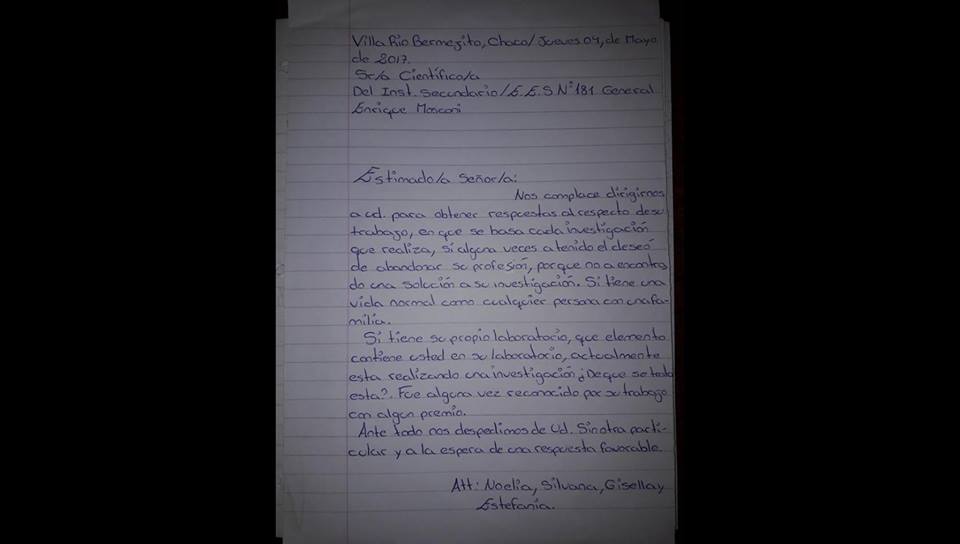 Villa Rio Bermejito, Chaco/Jueves 04, de Mayo
de 2017.
Sr/a Científico/a
Del Inst. Secundario/E.E.S N° 181 General
Enrique Mosconi
Estimado/a Señor/a:
Nos complace dirigirnos
a ud. para obtener respuestas al respecto de su
trabajo, en que se basa cada investigación
que realiza, Si alguna veces a tenido el deseó
de abandonar su profesión, porque no a encontra
do una solución a su investigación. Si tiene una
vida normal como cualquier persona con una fa-
milia.
Si tiene su propio laboratorio, que elemento
contiene usted en su laboratorio, actualmente
esta realizando una investigación ¿De que se trata
esta?. Fue alguna vez reconocido por su trabajo
con algun premio.
Ante todo nos despedimos de Ud. Sin otra parti-
cular y a la espera de una respuesta favorable.
Att: Noelia, Silvana, Gisella y
Estefanía.